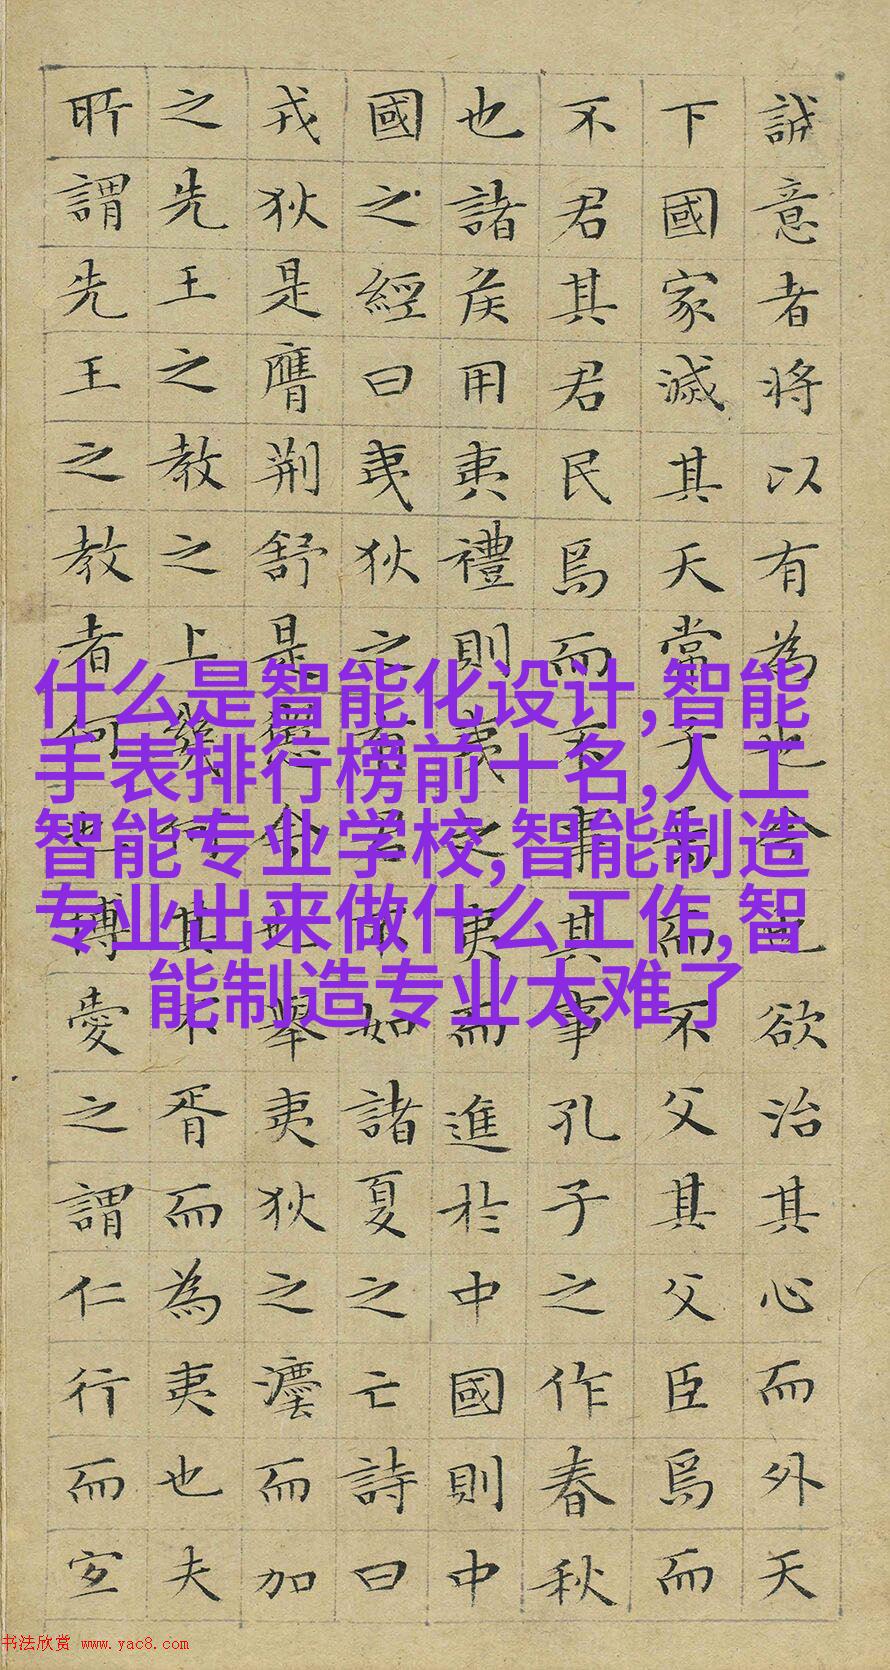 誠意者将以有為也今也欲治其心而外天
下國家滅其天常子焉而不父其父臣焉而
不君其君民焉而不事其事孔子之作春秋
也諸侯用夷禮則夷之夷而進於中國則中
國之經曰夷狄之有君不如諸夏之亡詩曰
戎狄是膺荆舒是懲今也舉夷狄之灋而加
之先王之教之上幾何其不胥而為夷也夫
所謂先王之教者何也博愛之謂仁行而宜
什么是智能化设计,智能
手表排行榜前十名,人工
智能专业学校,智能制造
专业出来做什么工作,智
能制造专业太难了
书法欣赏 www.yac8.com